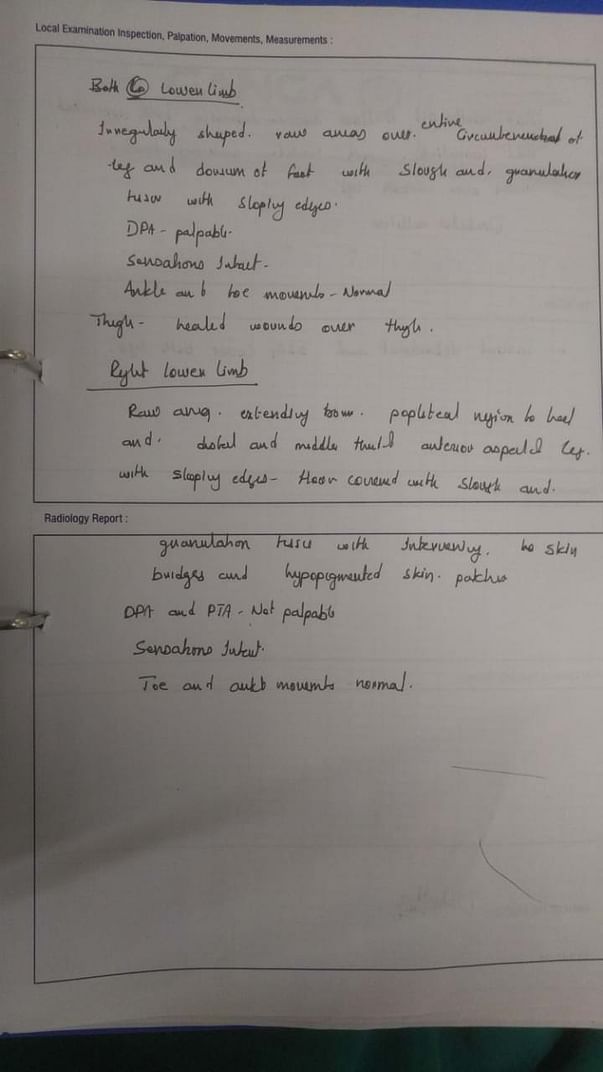 Local Examination Inspection, Palpation, Movements, Measurements :
Both Lowen limb
Irregularly shaped. raw areas over. entire Circumferential of
leg and dorsum of foot with Slough and. granulation
tissue with sloping edges.
DPA - palpable.
Sensations Intact.
Ankle and toe movements - Normal
Thigh - healed wounds over thigh.
Right lowen limb
Raw area. extending from. popliteal region to heel
and. distal and middle third anterior aspect of leg.
with sloping edges - floor covered with slough and.
Radiology Report :
granulation tissue with Intervening. skin
bridges and hypopigmented skin. patches
DPA and PTA - Not palpable
Sensations Intact.
Toe and ankle movements normal.